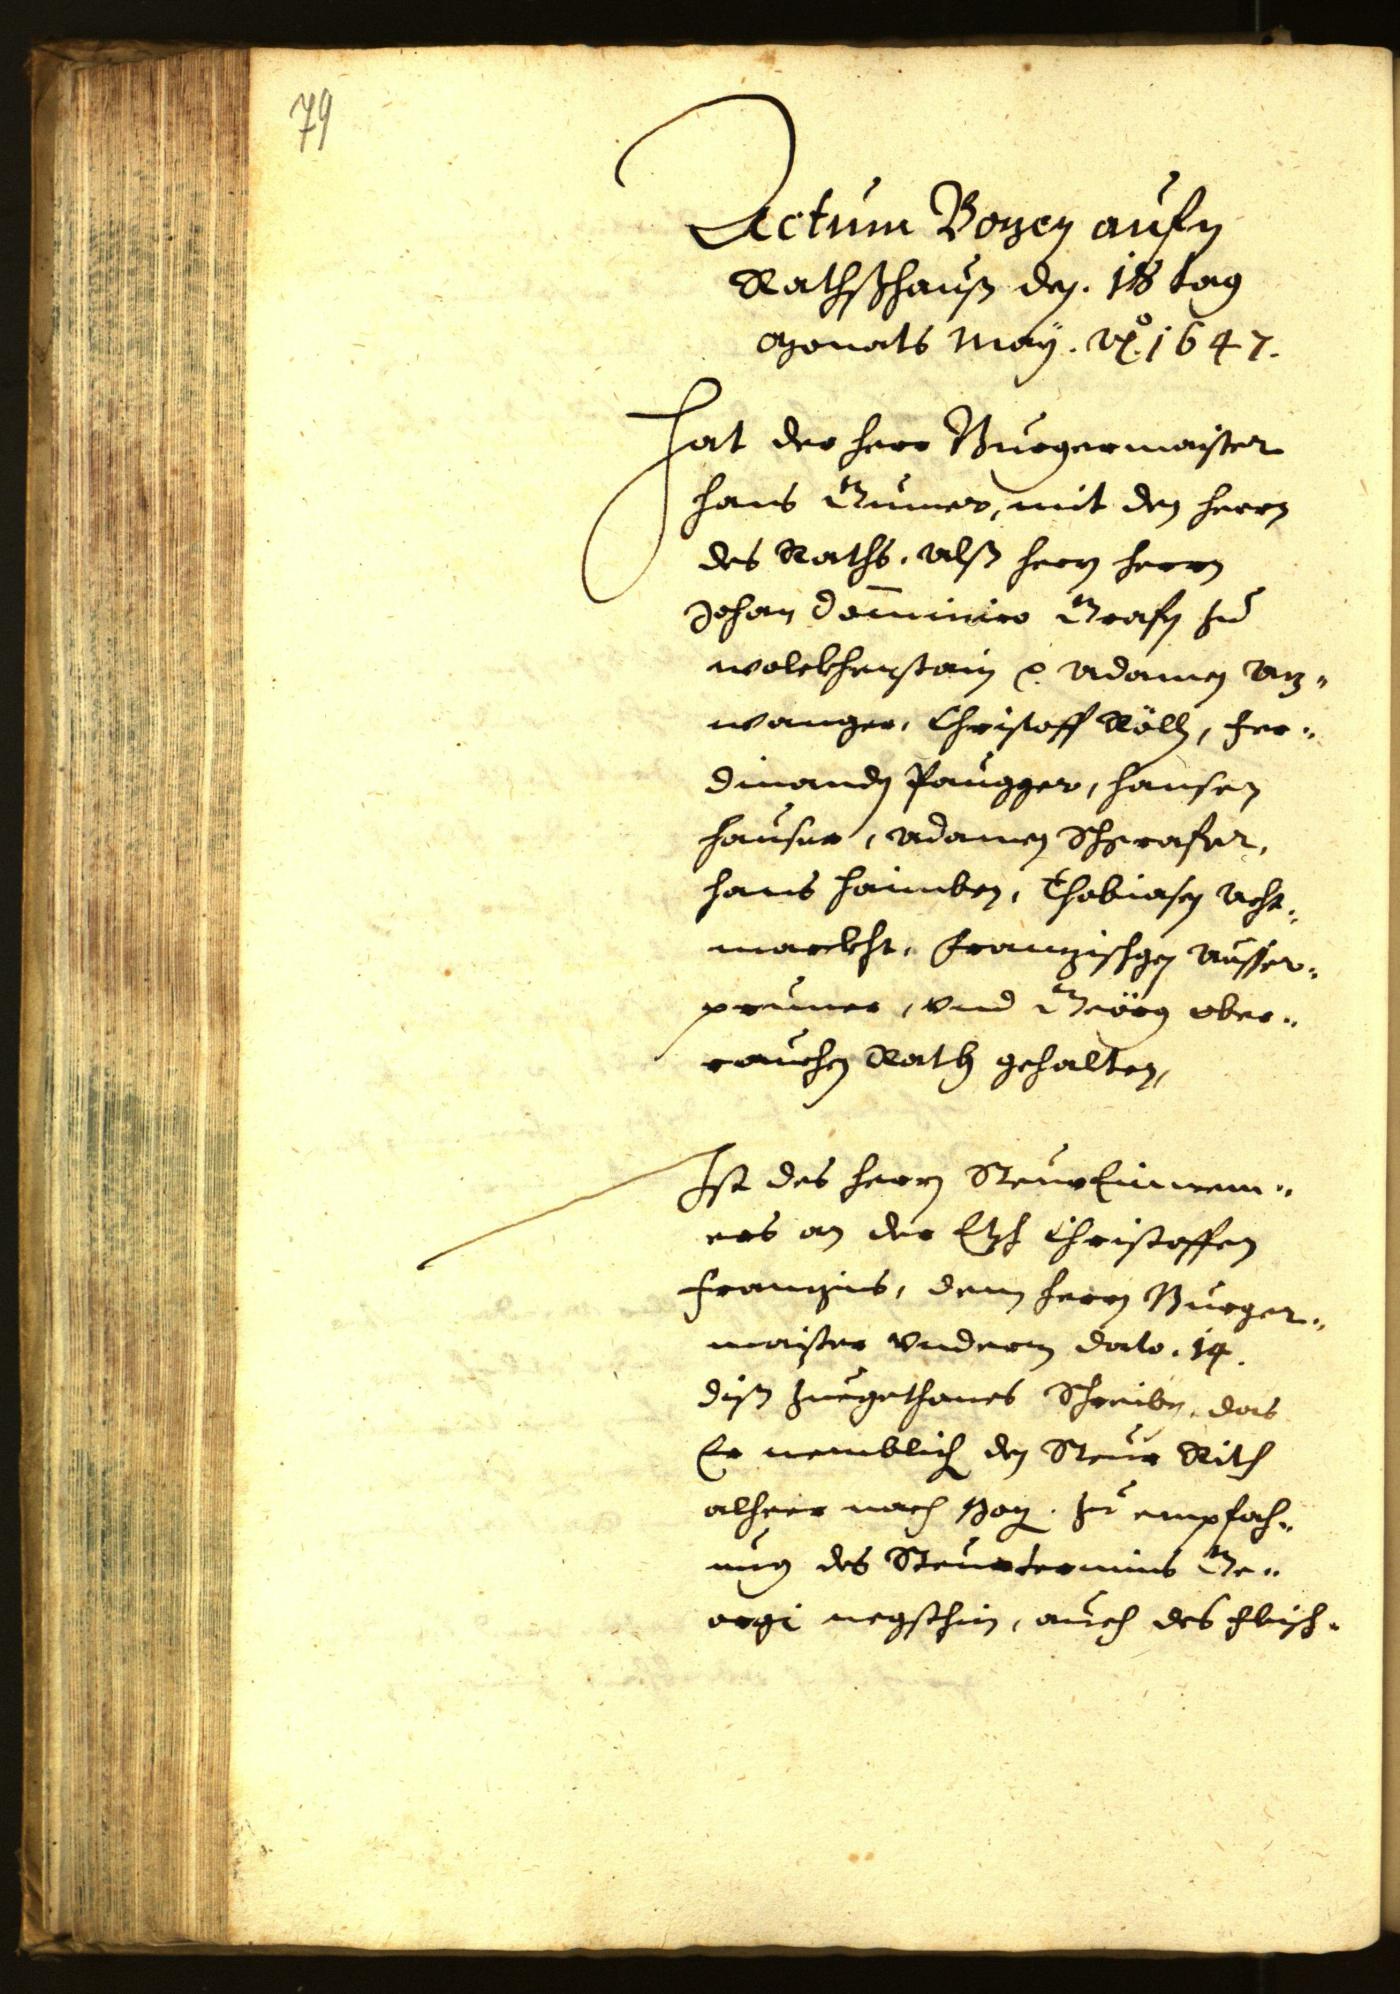 79
Actum Bozen aufn
Rathßhauß den. 18 tag
Monats May. Ao. 1647.
Hat der herr Burgermaister
hans Gumer, mit den herrn
des Raths, alß hern herrn
Johan Dominico Grafn zu
wolckhenstain p. Adamen An„
wanger, Christoff Röllz, Fer„
dinandn Paugger, hansen
hauser, Adamen Schgrafer,
hans haimben, Thobiasen Acht„
marckht, Franzischgen Ausser„
pruner, vnd Geörg ober„
rauchen Rath gehalten,
Ist des herrn SteurEinnem„
ers an der Etsch Christoffen
Franzins, dem herrn Burger„
maister vnderm dato. 14.
diß zuegethanes Schreiben, das
Er nemblich den Steur Ritt
alheer nach Boz. zu empfach„
nug des Steurtermins Ge„
orgi negsthin, auch des fleisch„